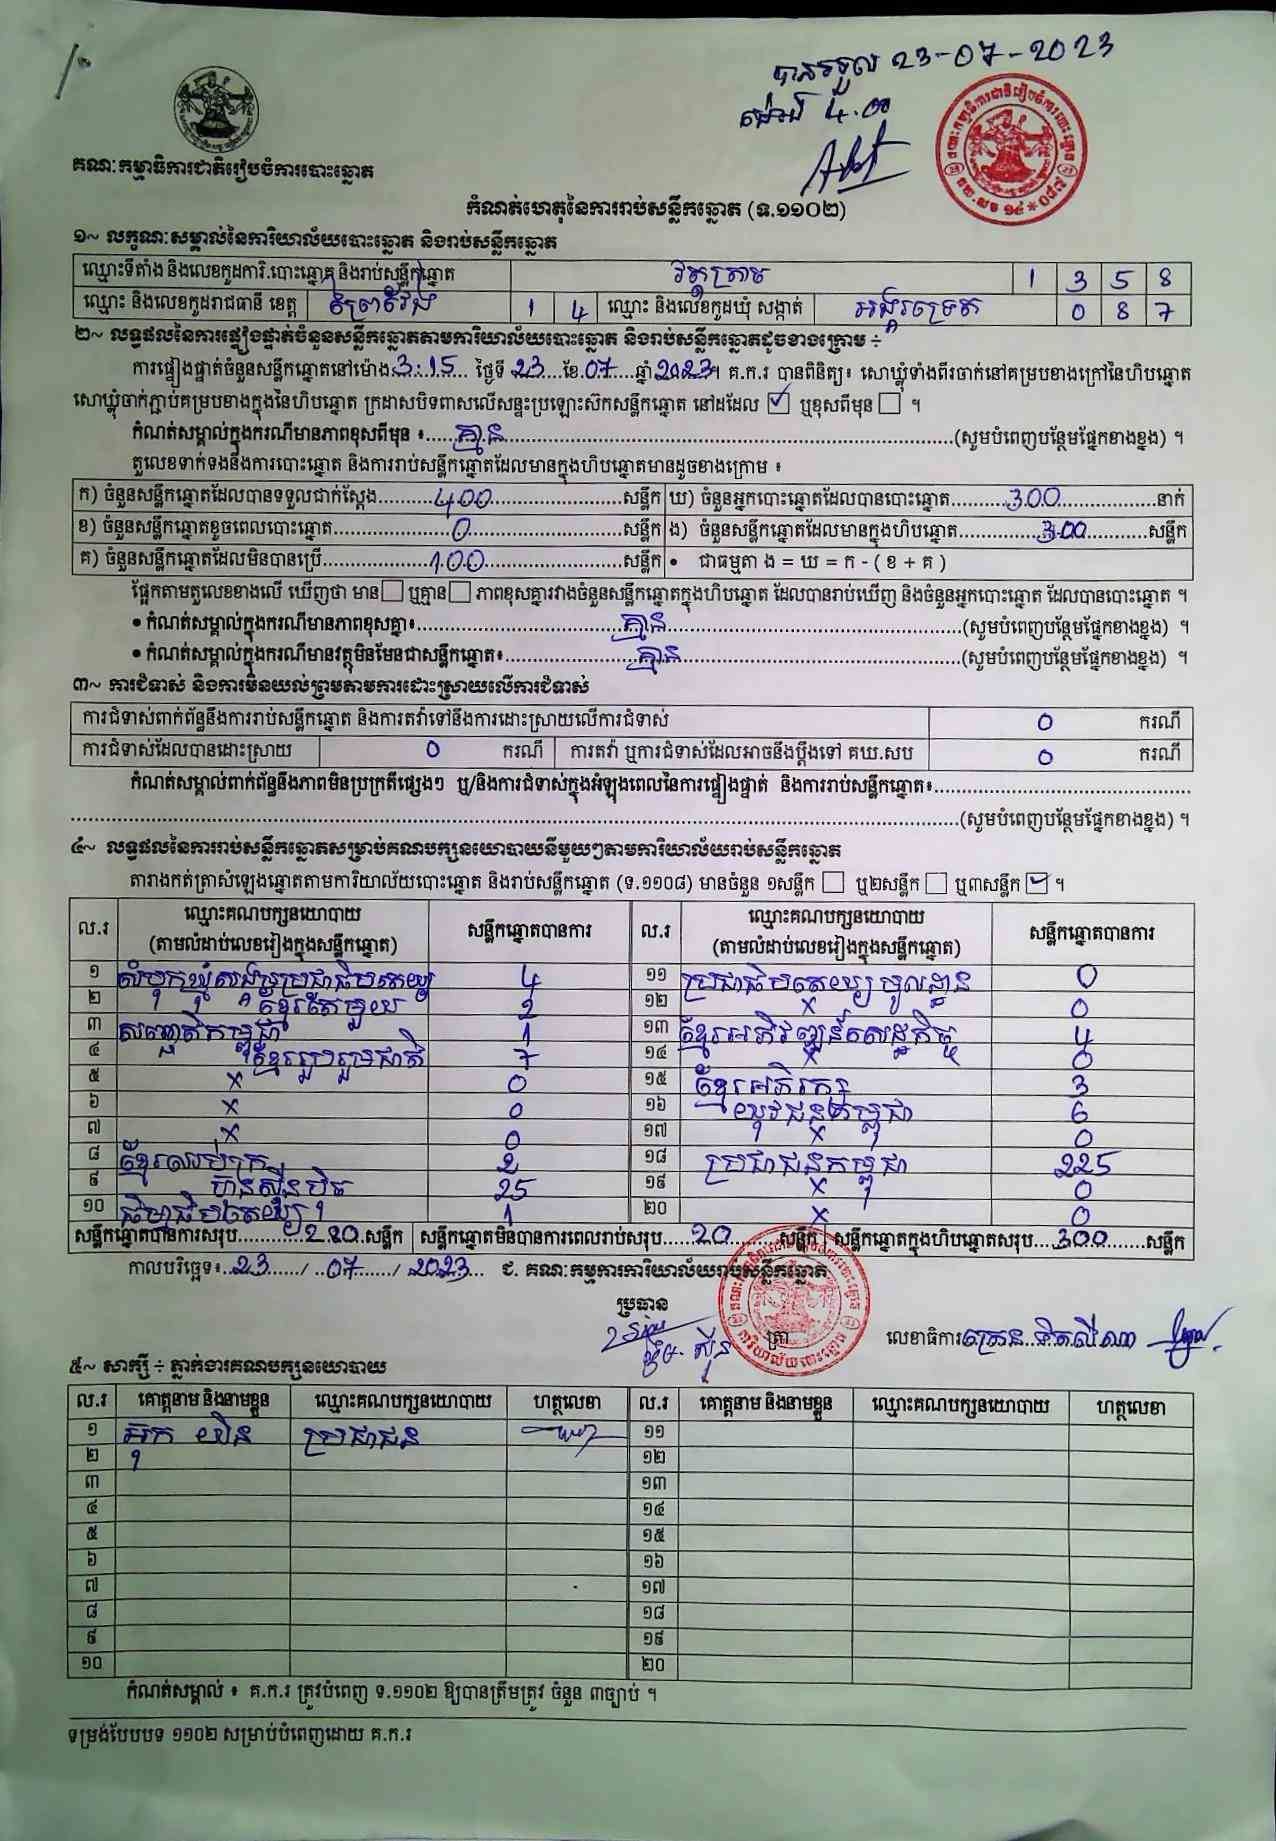 បានទទួល 23-07-2023
ម៉ោង 4.00
គណៈកម្មាធិការជាតិរៀបចំការបោះឆ្នោត
កំណត់ហេតុនៃការរាប់សន្លឹកឆ្នោត (ទ.១១០២)
១~ លក្ខណៈសម្គាល់នៃការិយាល័យបោះឆ្នោត និងរាប់សន្លឹកឆ្នោត
ឈ្មោះទីតាំង និងលេខកូដការិ.បោះឆ្នោត និងរាប់សន្លឹកឆ្នោត វត្តត្រាម 1 3 5 8
ឈ្មោះ និងលេខកូដរាជធានី ខេត្ត ព្រៃវែង 1 4 ឈ្មោះ និងលេខកូដឃុំ សង្កាត់ អង្គរទ្រេត 0 8 7
២~ លទ្ធផលនៃការផ្ទៀងផ្ទាត់ចំនួនសន្លឹកឆ្នោតតាមការិយាល័យបោះឆ្នោត និងរាប់សន្លឹកឆ្នោតដូចខាងក្រោម ÷
ការផ្ទៀងផ្ទាត់ចំនួនសន្លឹកឆ្នោតនៅម៉ោង 3:15 ថ្ងៃទី 23 ខែ 07 ឆ្នាំ 2023។ គ.ក.រ បានពិនិត្យ៖ សោឃ្លុំទាំងពីរចាក់នៅគម្របខាងក្រៅនៃហិបឆ្នោត
សោឃ្លុំចាក់ភ្ជាប់គម្របខាងក្នុងនៃហិបឆ្នោត ក្រដាសបិទពាសលើសន្ទះប្រឡោះស៊កសន្លឹកឆ្នោត នៅដដែល ☑ ឬខុសពីមុន ☐ ។
កំណត់សម្គាល់ក្នុងករណីមានភាពខុសពីមុន ៖ គ្មាន (សូមបំពេញបន្ថែមផ្នែកខាងខ្នង) ។
តួលេខទាក់ទងនឹងការបោះឆ្នោត និងការរាប់សន្លឹកឆ្នោតដែលមានក្នុងហិបឆ្នោតមានដូចខាងក្រោម ៖
ក) ចំនួនសន្លឹកឆ្នោតដែលបានទទួលជាក់ស្តែង 400 សន្លឹក ឃ) ចំនួនអ្នកបោះឆ្នោតដែលបានបោះឆ្នោត 300 នាក់
ខ) ចំនួនសន្លឹកឆ្នោតខូចពេលបោះឆ្នោត 0 សន្លឹក ង) ចំនួនសន្លឹកឆ្នោតដែលមានក្នុងហិបឆ្នោត 300 សន្លឹក
គ) ចំនួនសន្លឹកឆ្នោតដែលមិនបានប្រើ 100 សន្លឹក • ជាធម្មតា ង = ឃ = ក - ( ខ + គ )
ផ្អែកតាមតួលេខខាងលើ ឃើញថា មាន ☐ ឬគ្មាន ☐ ភាពខុសគ្នារវាងចំនួនសន្លឹកឆ្នោតក្នុងហិបឆ្នោត ដែលបានរាប់ឃើញ និងចំនួនអ្នកបោះឆ្នោត ដែលបានបោះឆ្នោត ។
• កំណត់សម្គាល់ក្នុងករណីមានភាពខុសគ្នា៖ គ្មាន (សូមបំពេញបន្ថែមផ្នែកខាងខ្នង) ។
• កំណត់សម្គាល់ក្នុងករណីមានវត្ថុមិនមែនជាសន្លឹកឆ្នោត៖ គ្មាន (សូមបំពេញបន្ថែមផ្នែកខាងខ្នង) ។
៣~ ការជំទាស់ និងការមិនយល់ព្រមតាមការដោះស្រាយលើការជំទាស់
ការជំទាស់ពាក់ព័ន្ធនឹងការរាប់សន្លឹកឆ្នោត និងការតវ៉ាទៅនឹងការដោះស្រាយលើការជំទាស់ 0 ករណី
ការជំទាស់ដែលបានដោះស្រាយ 0 ករណី ការតវ៉ា ឬការជំទាស់ដែលអាចនឹងប្តឹងទៅ គឃ.សប 0 ករណី
កំណត់សម្គាល់ពាក់ព័ន្ធនឹងភាពមិនប្រក្រតីផ្សេងៗ ឬ/និងការជំទាស់ក្នុងអំឡុងពេលនៃការផ្ទៀងផ្ទាត់ និងការរាប់សន្លឹកឆ្នោត៖
(សូមបំពេញបន្ថែមផ្នែកខាងខ្នង) ។
៤~ លទ្ធផលនៃការរាប់សន្លឹកឆ្នោតសម្រាប់គណបក្សនយោបាយនីមួយៗតាមការិយាល័យរាប់សន្លឹកឆ្នោត
តារាងកត់ត្រាសំឡេងឆ្នោតតាមការិយាល័យបោះឆ្នោត និងរាប់សន្លឹកឆ្នោត (ទ.១១០៨) មានចំនួន ១សន្លឹក ☐ ឬ២សន្លឹក ☐ ឬ៣សន្លឹក ☑ ។
ល.រ ឈ្មោះគណបក្សនយោបាយ (តាមលំដាប់លេខរៀងក្នុងសន្លឹកឆ្នោត) សន្លឹកឆ្នោតបានការ ល.រ ឈ្មោះគណបក្សនយោបាយ (តាមលំដាប់លេខរៀងក្នុងសន្លឹកឆ្នោត) សន្លឹកឆ្នោតបានការ
១ សំបុកឃ្មុំសង្គមប្រជាធិបតេយ្យ 4 ១១ ប្រជាធិបតេយ្យមូលដ្ឋាន 0
២ ខ្មែរតែមួយ 2 ១២ × 0
៣ សញ្ជាតិកម្ពុជា 1 ១៣ ខ្មែរអភិវឌ្ឍន៍សេដ្ឋកិច្ច 4
៤ ខ្មែររួបរួមជាតិ 7 ១៤ × 0
៥ × 0 ១៥ ខ្មែរអភិរក្ស 3
៦ × 0 ១៦ យុវជនកម្ពុជា 6
៧ × 0 ១៧ × 0
៨ ខ្មែរឈប់ក្រ 2 ១៨ ប្រជាជនកម្ពុជា 225
៩ ហ៊្វុនស៊ិនប៉ិច 25 ១៩ × 0
១០ ធិម្មាធិបតេយ្យ 1 ២០ × 0
សន្លឹកឆ្នោតបានការសរុប 280 សន្លឹក សន្លឹកឆ្នោតមិនបានការពេលរាប់សរុប 20 សន្លឹក សន្លឹកឆ្នោតក្នុងហិបឆ្នោតសរុប 300 សន្លឹក
កាលបរិច្ឆេទ៖ 23 / 07 / 2023 ជ. គណៈកម្មការការិយាល័យរាប់សន្លឹកឆ្នោត
ប្រធាន
ត្រា លេខាធិការ
៥~ សាក្សី ÷ ភ្នាក់ងារគណបក្សនយោបាយ
ល.រ គោត្តនាម និងនាមខ្លួន ឈ្មោះគណបក្សនយោបាយ ហត្ថលេខា ល.រ គោត្តនាម និងនាមខ្លួន ឈ្មោះគណបក្សនយោបាយ ហត្ថលេខា
១ អ៊ុក យ៉ិន ប្រជាជន ១១
២ ១២
៣ ១៣
៤ ១៤
៥ ១៥
៦ ១៦
៧ ១៧
៨ ១៨
៩ ១៩
១០ ២០
កំណត់សម្គាល់ ៖ គ.ក.រ ត្រូវបំពេញ ទ.១១០២ ឱ្យបានត្រឹមត្រូវ ចំនួន ៣ច្បាប់ ។
ទម្រង់បែបបទ ១១០២ សម្រាប់បំពេញដោយ គ.ក.រ